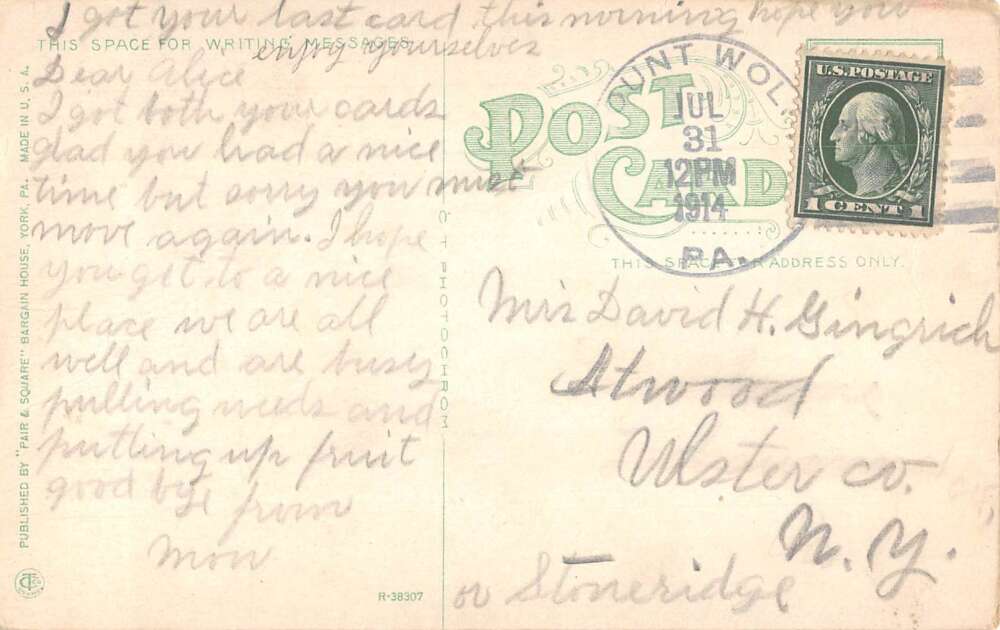 I got your last card this morning hope you
enjoy yourselves
THIS SPACE FOR WRITING MESSAGES
Dear Alice
I got both your cards
glad you had a nice
time but sorry you must
move again. I hope
you get to a nice
place we are all
well and are busy
pulling weeds and
putting up fruit
good bye from
Mom
PUBLISHED BY "FAIR & SQUARE" BARGAIN HOUSE, YORK, PA. MADE IN U. S. A.
PHOTOCHROM
R-38307
POST CARD
OUNT WOL
JUL
31
12PM
1914
PA.
U.S. POSTAGE
1 CENT 1
THIS SPACE FOR ADDRESS ONLY.
Mrs David H. Gingrich
Atwood
Ulster co.
N. Y.
or Stoneridge